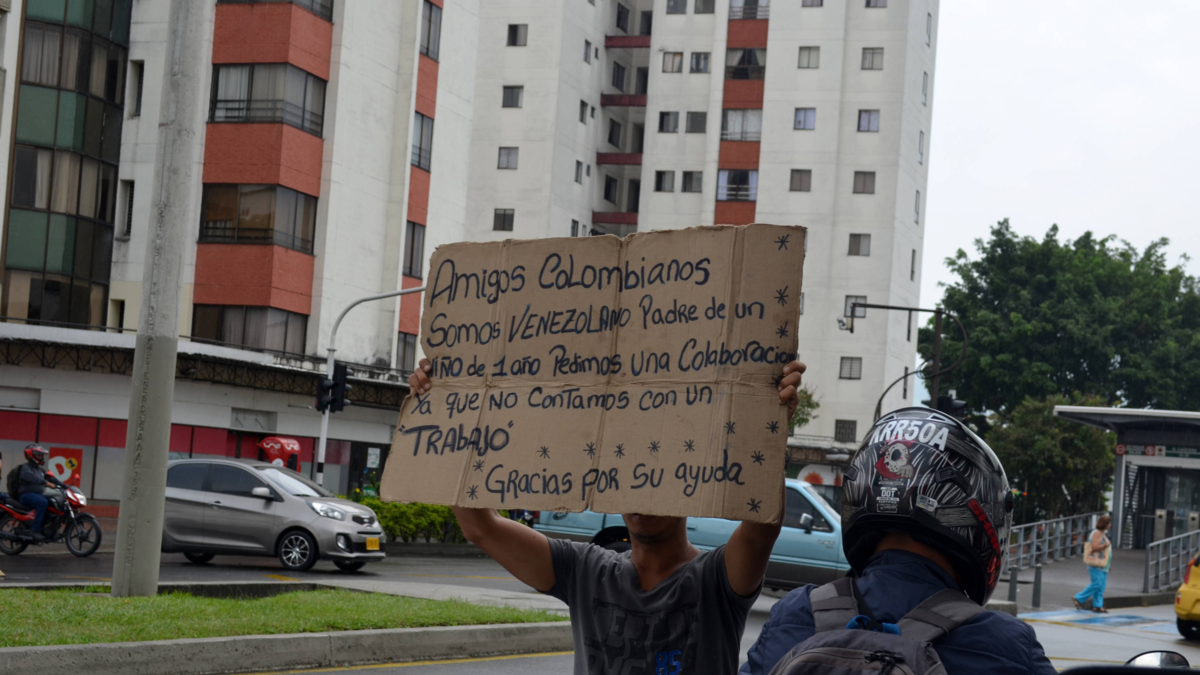 Amigos Colombianos
Somos VENEZOLANO Padre de un
NIÑO de 1 año Pedimos una Colaboracion
Ya que NO Contamos con un
"TRABAJO"
Gracias por su ayuda
KRR50A
DOT
85